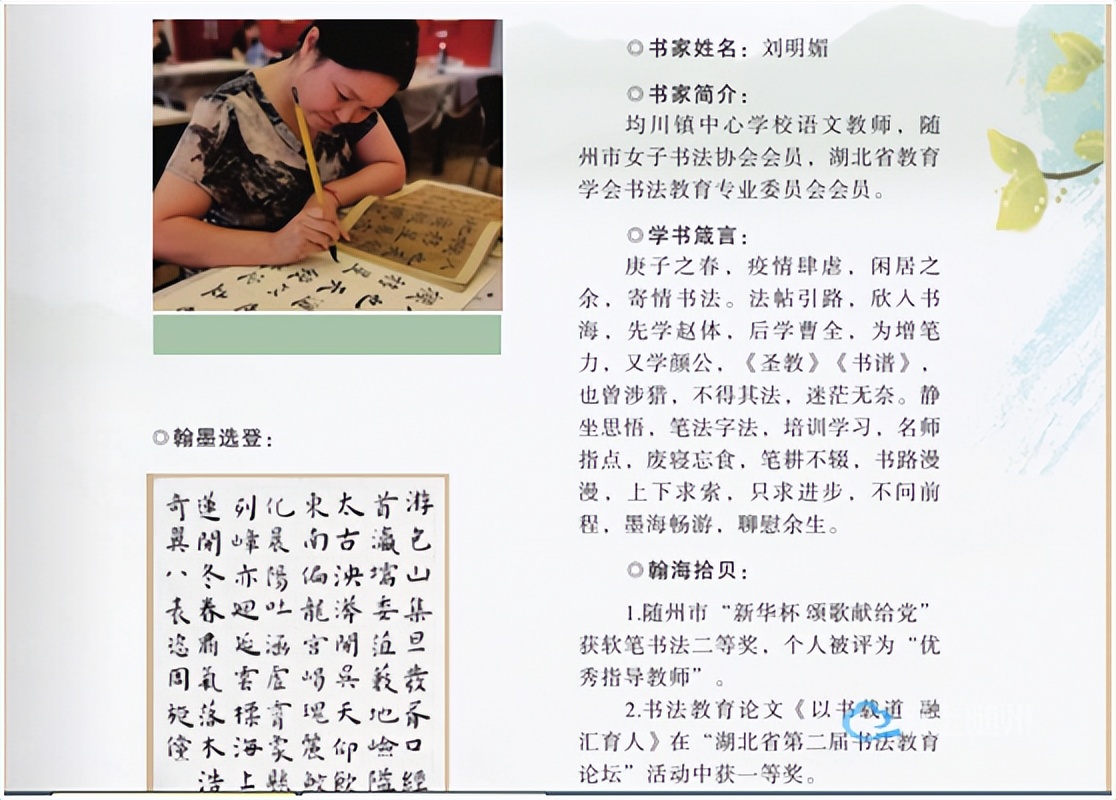 ◎书家姓名：刘明媚
◎书家简介：
均川镇中心学校语文教师，随
州市女子书法协会会员，湖北省教育
学会书法教育专业委员会会员。
◎学书箴言：
庚子之春，疫情肆虐，闲居之
余，寄情书法。法帖引路，欣入书
海，先学赵体，后学曹全，为增笔
力，又学颜公，《圣教》《书谱》，
也曾涉猎，不得其法，迷茫无奈。静
坐思悟，笔法字法，培训学习，名师
指点，废寝忘食，笔耕不辍，书路漫
漫，上下求索，只求进步，不问前
程，墨海畅游，聊慰余生。
◎翰海拾贝：
1.随州市“新华杯 颂歌献给党”
获软笔书法二等奖，个人被评为“优
秀指导教师”。
2.书法教育论文《以书载道 融
汇育人》在“湖北省第二届书法教育
论坛”活动中获一等奖。
◎翰墨选登：
游包山集旦發胥口經
首瀛壖委藪地嶮
太古泱漭開吳天仰
東南偏龍宮瑰麓
化晨陽吐涵虛霄
列峰亦迴延雲標海上
遂閒冬春肅氣落木浩
奇翼八表恣周旋僮